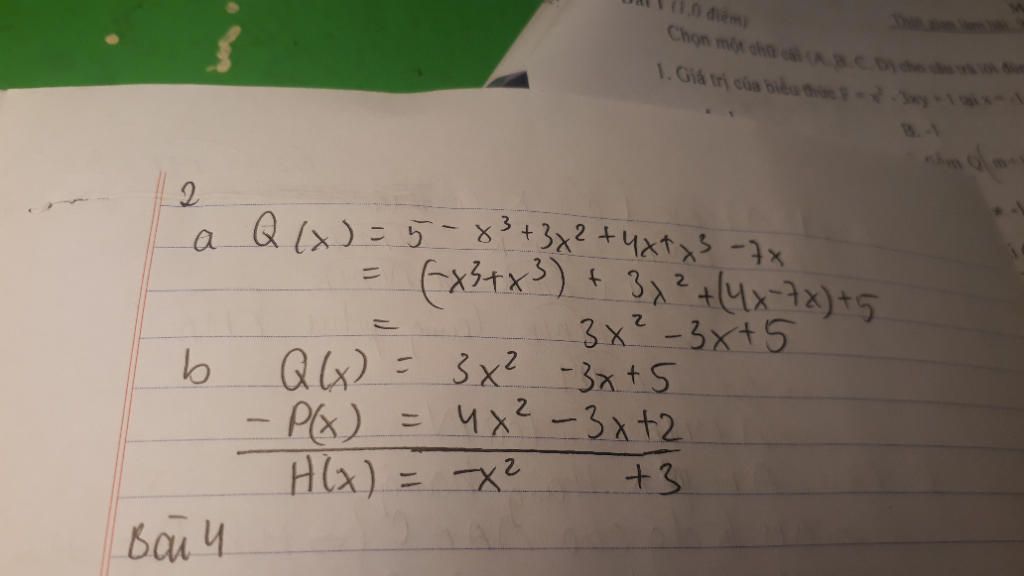 Bài 1 (1,0 điểm)
Chọn một chữ cái (A, B, C, D) cho câu trả lời
1. Giá trị của biểu thức
B. -1
2
a Q(x) = 5 - x³ + 3x² + 4x + x³ - 7x
= (-x³+x³) + 3x² + (4x-7x) + 5
= 3x² - 3x + 5
b Q(x) = 3x² - 3x + 5
- P(x) = 4x² - 3x + 2
H(x) = -x² + 3
Bài 4